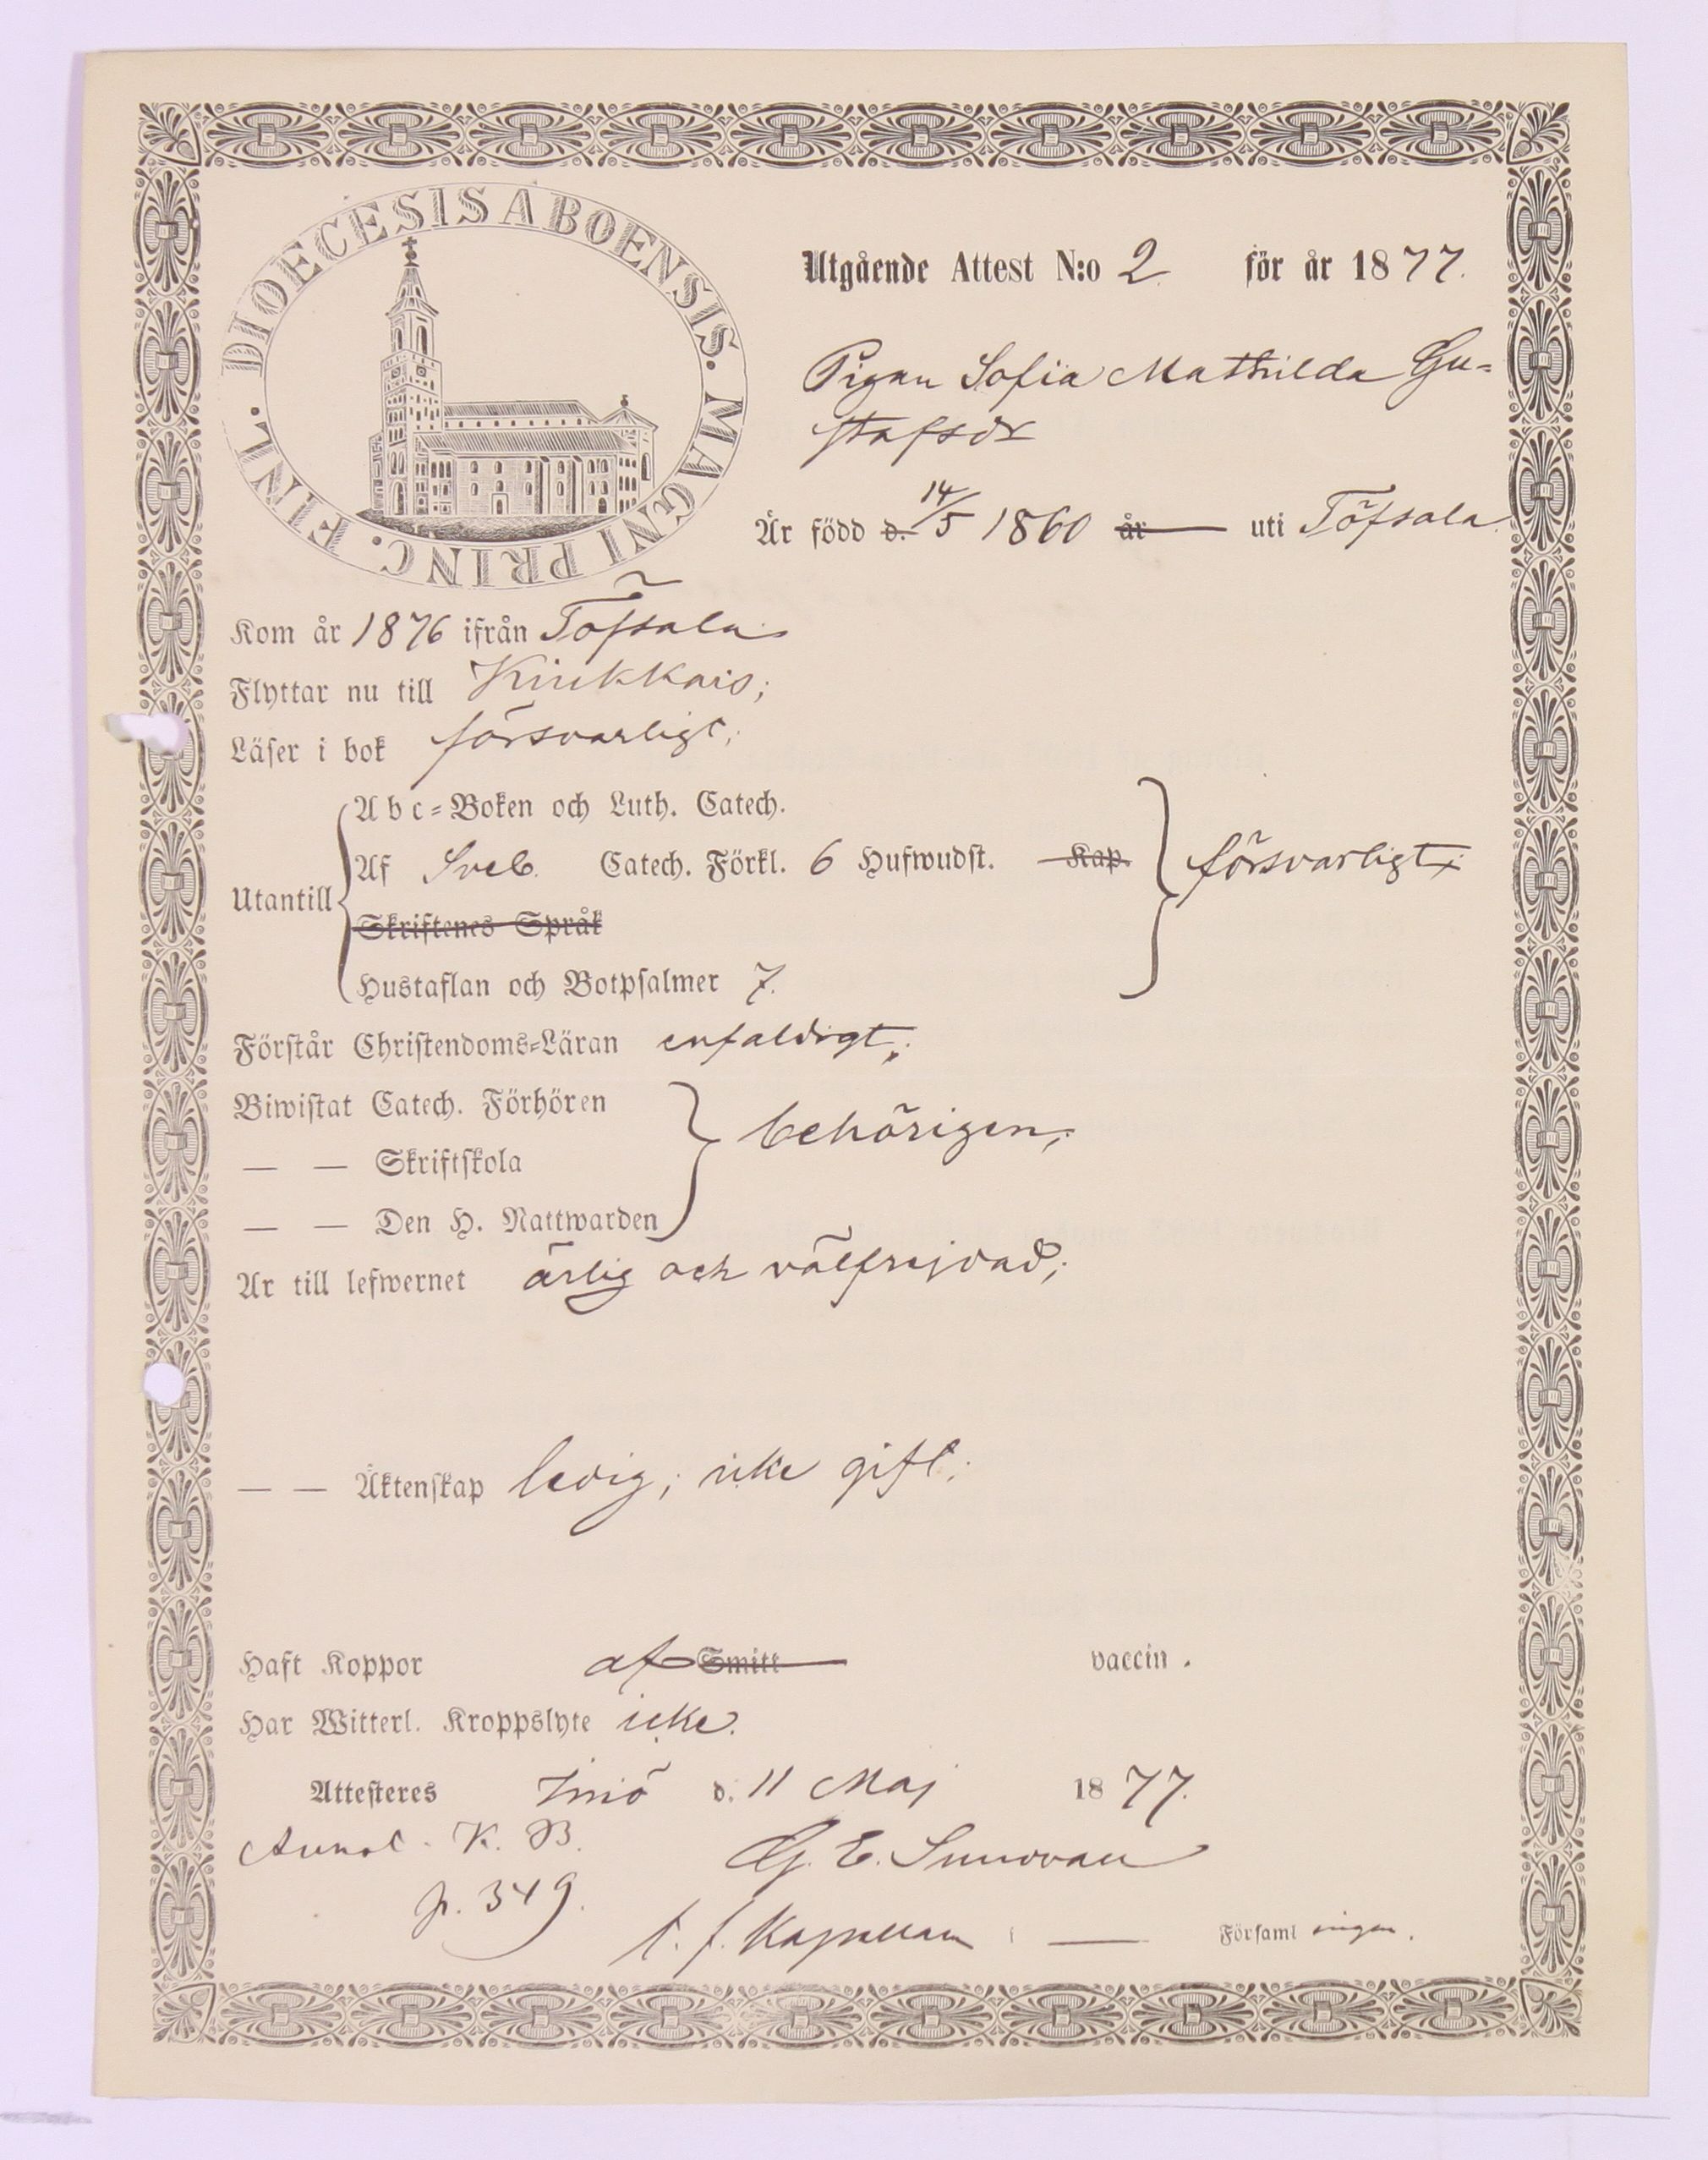 DIOECESIS ABOENSIS. MAGNI PRINC. FINL.
Utgående Attest N:o 2 för år 1877.
Pigan Sofia Mathilda Gu-
stafsdr
Är född d. 14/5 1860 år uti Töfsala
Kom år 1876 ifrån Töfsala
Flyttar nu till Kiukkais;
Läser i bok försvarligt;
Abc-Boken och Luth. Catech.
Af Sveb. Catech. Förkl. 6 Hufwudst. Kap. försvarligt;
Utantill
Skriftenes Språk
Hustaflan och Botpsalmer 7.
Förstår Christendoms-Läran enfaldigt;
Biwistat Catech. Förhören
— — Skriftskola behörigen;
— — Den H. Nattwarden
Är till lefwernet ärlig och välfrejdad;
— — Äktenskap ledig; icke gift;
Haft Koppor af Smitt vaccin.
Har Witterl. Kroppslyte icke.
Attesteres Iniö d. 11 Maj 1877.
Annot. K. B.
p. 349.
G. E.
t. f. Kapellan i — Församlingen.